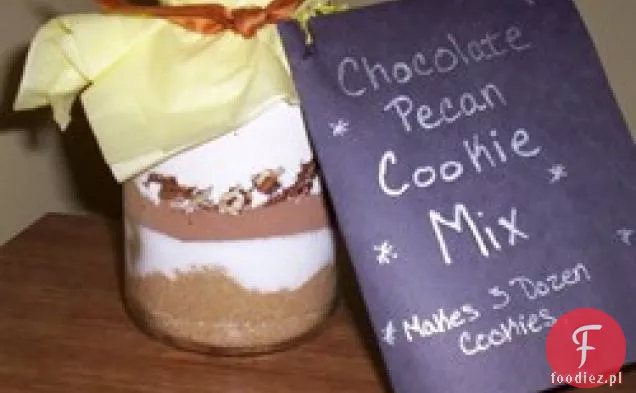 Chocolate
* Pecan
Cookie
* Mix *
* Makes 3 Dozen
Cookies
foodiez.pl